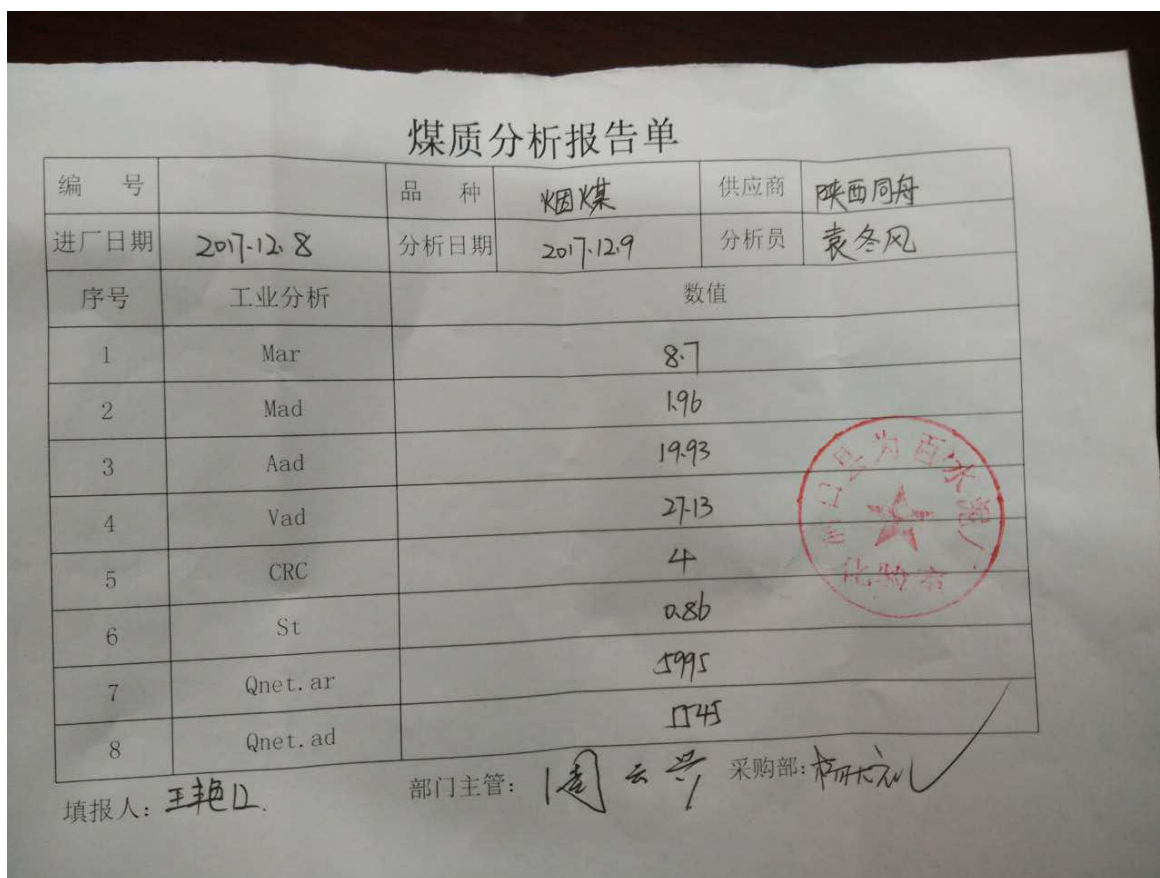 煤质分析报告单
编 号 品 种 烟煤 供应商 陕西同舟
进厂日期 2017.12.8 分析日期 2017.12.9 分析员 袁冬风
序号 工业分析 数值
1 Mar 8.7
2 Mad 1.96
3 Aad 19.93
4 Vad 27.13
5 CRC 4
6 St 0.86
7 Qnet.ar 5995
8 Qnet.ad 5545
填报人: 王艳 部门主管: 周云兴 采购部:
水泥厂
化验室